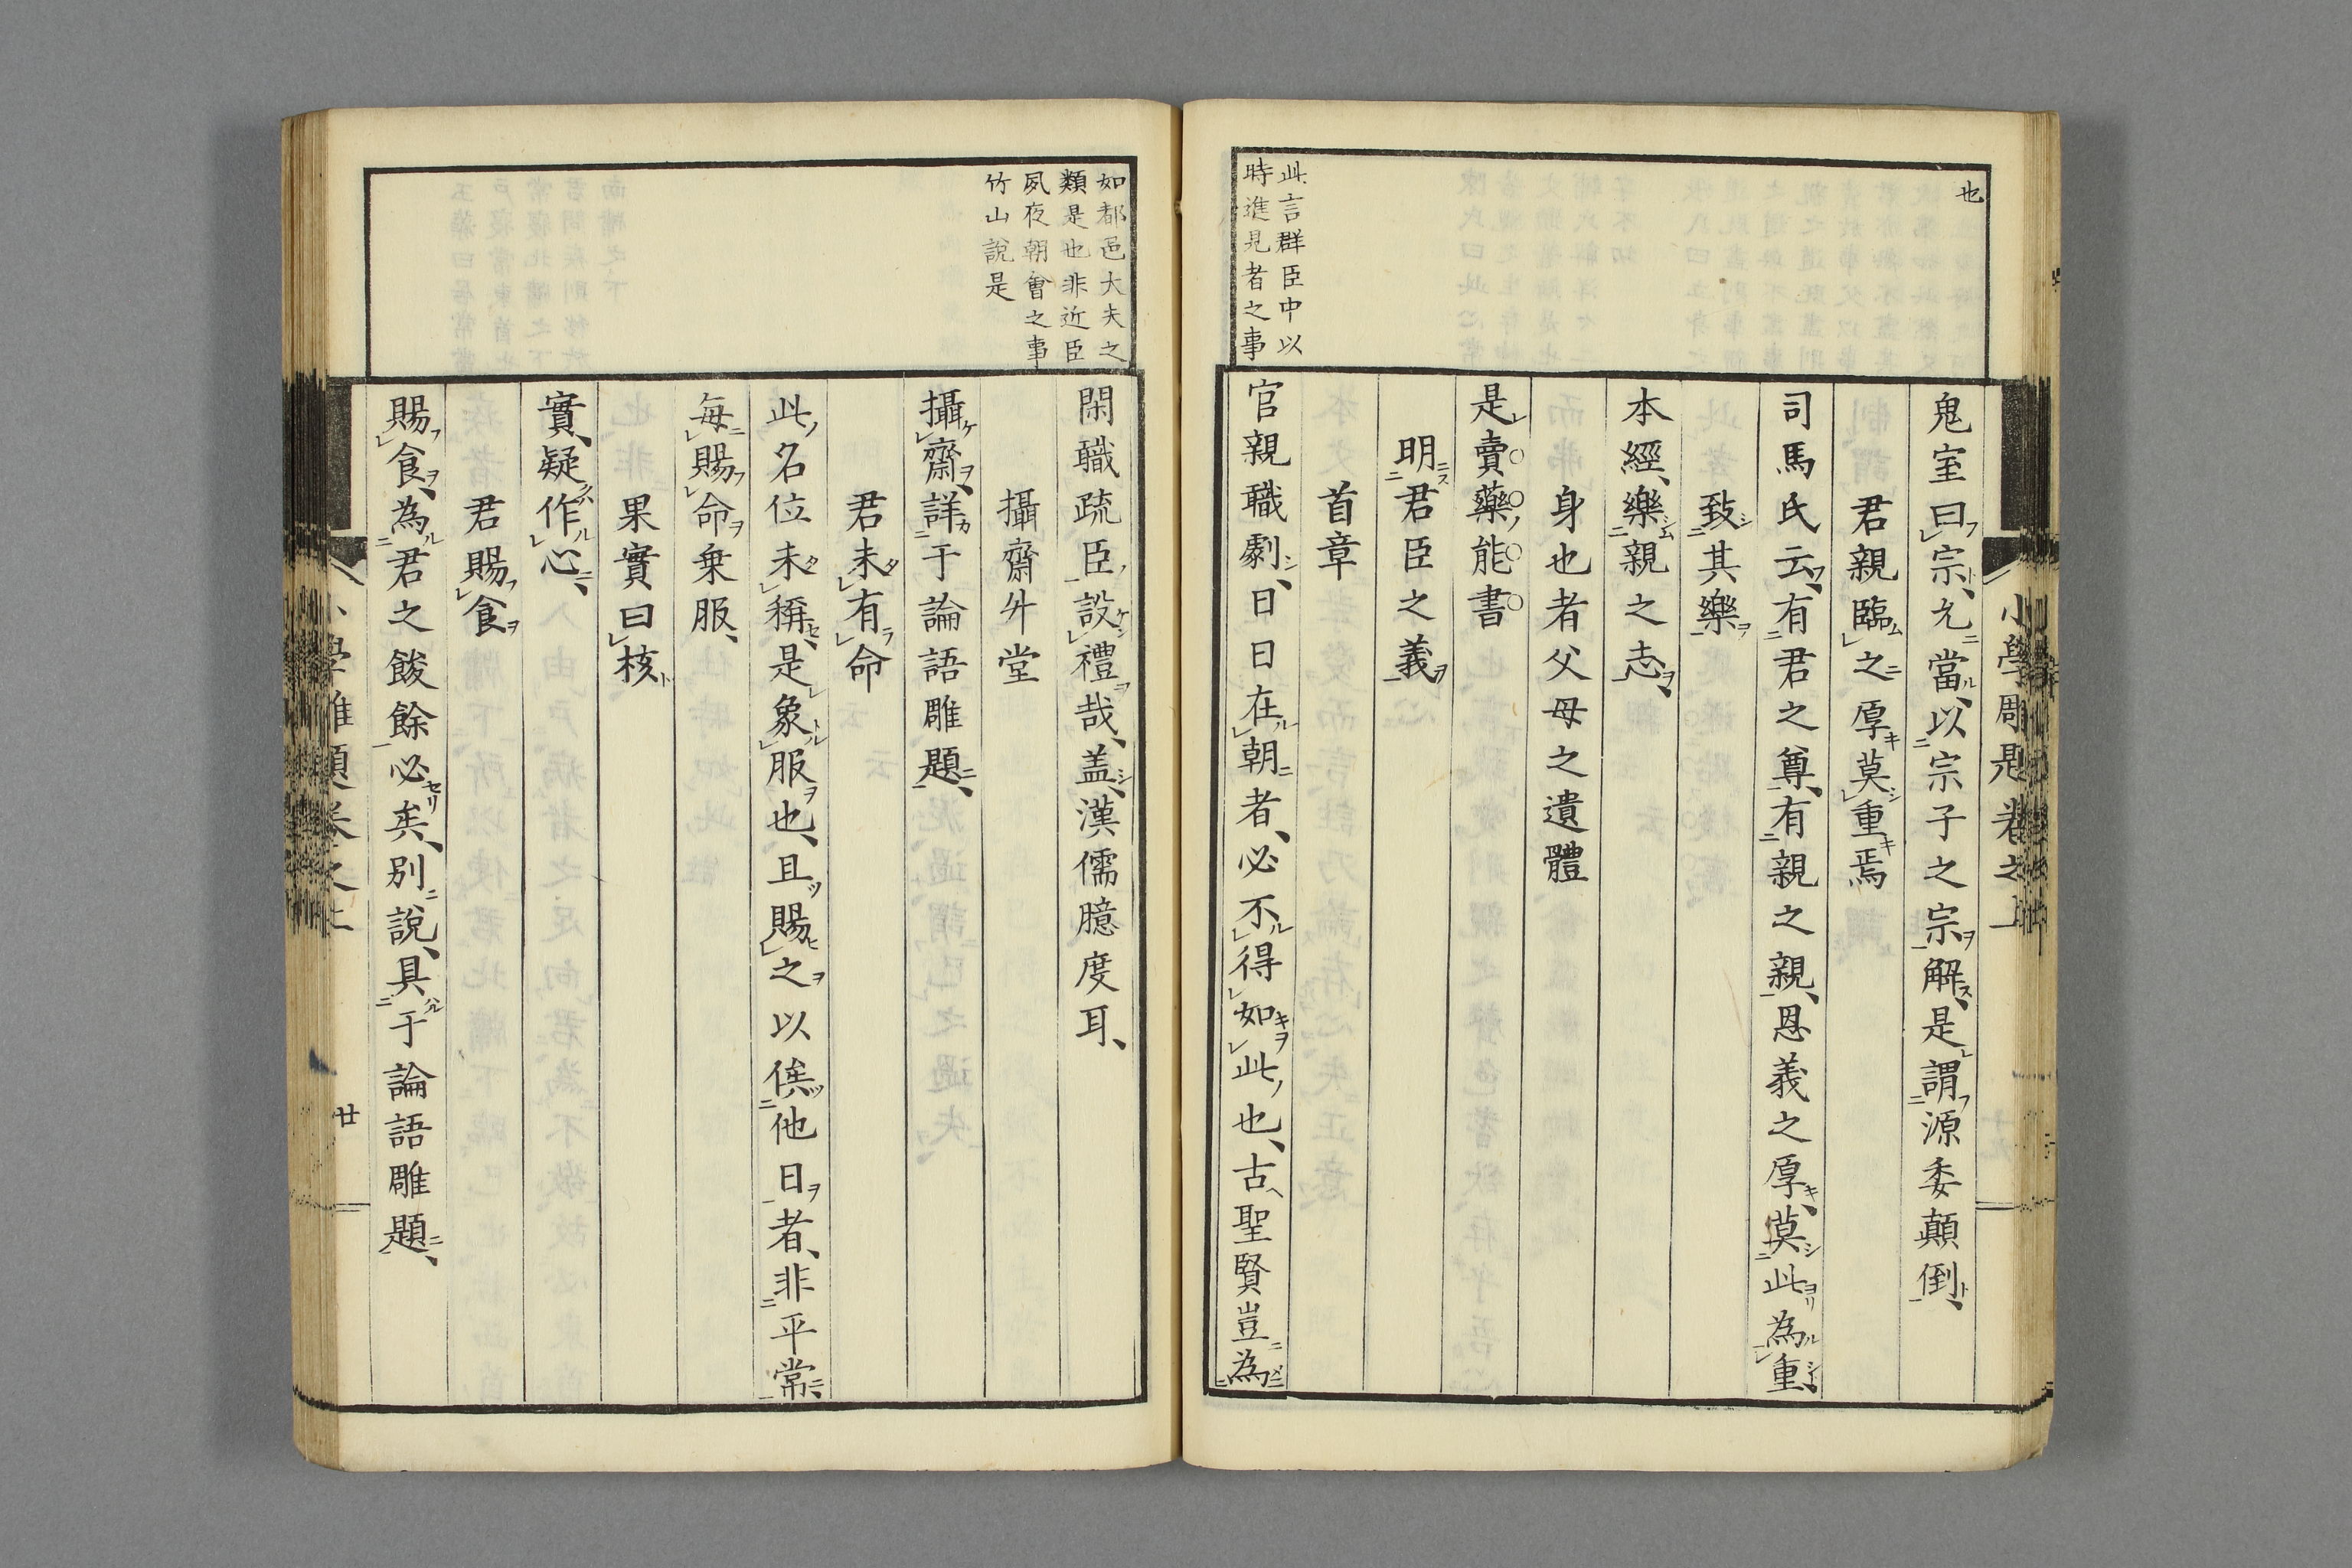 也
鬼室曰宗尤當以宗子之宗解是謂源委顛倒
君親臨之厚莫重焉
司馬氏云有君之尊有親之親恩義之厚莫此為重
致其樂
本經樂親之志
身也者父母之遺體
是賣藥能書
明君臣之義
首章
此言群臣中以
時進見者之事
官親職劇日日在朝者必不得如此也古聖賢豈為
如都邑大夫之
類是也非近臣
夙夜朝會之事
竹山說是
閑職疏臣設禮哉蓋漢儒臆度耳
攝齋升堂
攝齋詳于論語雕題
君未有命
此名位未稱是象服也且賜之以俟他日者非平常
每賜命乗服
果實曰核
實疑作心
君賜食
賜食為君之餕餘必矣別說具于論語雕題
廿